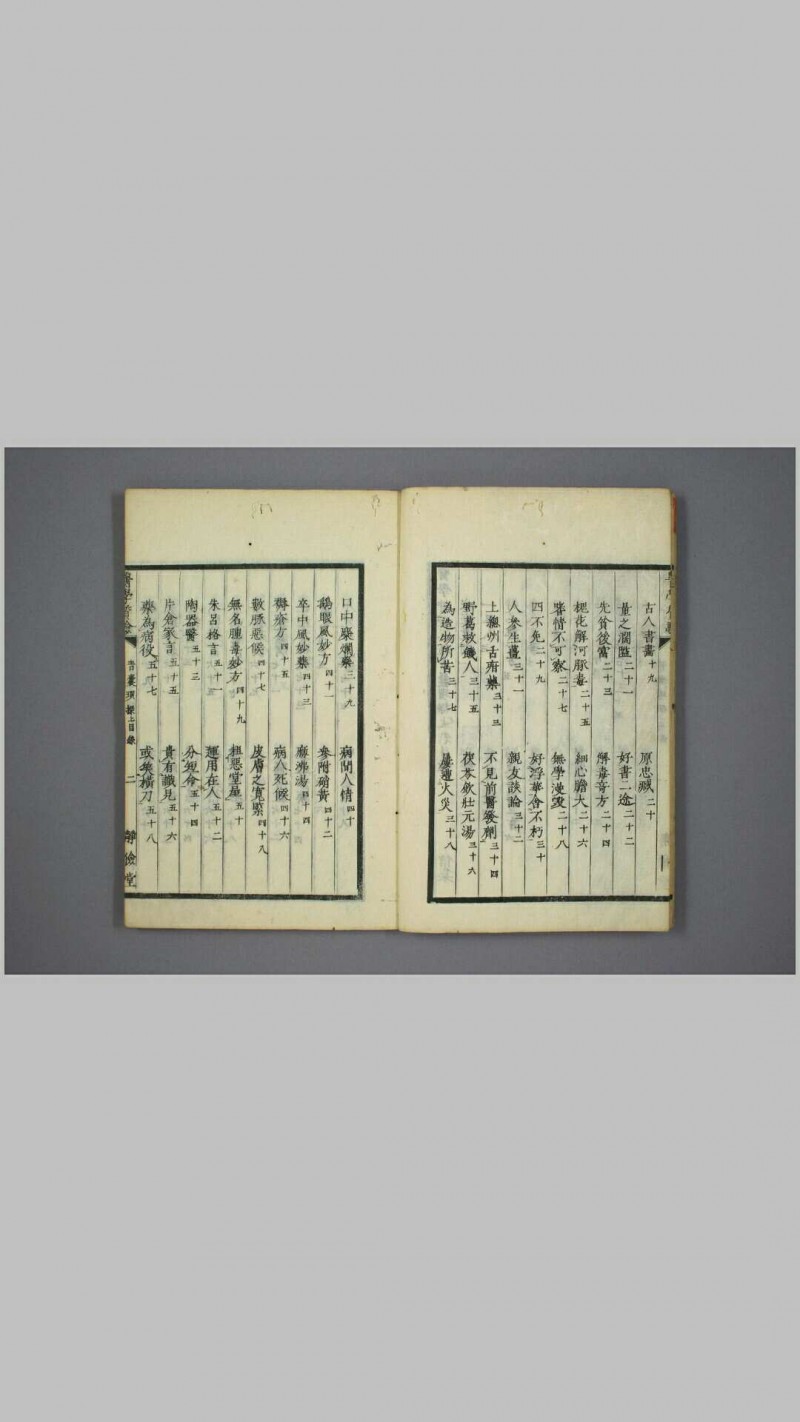 古人書畵十九
原忠臧二十
量之濶隘二十一
好書二途二十二
先貧後富二十三
解毒奇方二十四
槐花解河豚毒二十五
細心膽大二十六
醫情不可察二十七
無學漢
二十八
四不免二十九
好浮華舎不朽三十
人參生薑三十一
親友談論三十二
上總州古府藥三十三
不見前醫發劑三十四
野葛救饑人三十五
茯苓飲壯元湯三十六
為造物所苦三十七
火災三十八
口中藥
三十九
病間人情四十
鵝眼風妙方四十一
參附硝黄四十二
卒中風妙藥四十三
麻沸湯四十四
方四十五
病人死候四十六
數豚惡候四十七
皮膚之寛緊四十八
無名腫毒妙方四十九
粗惡
五十
朱呂格言五十一
運用在人五十二
陶器醫五十三
分
五十四
片倉家言五十五
貴有識見五十六
藥為病役五十七
或
横刀五十八
青囊瑣錄上目錄
二
靜儉堂